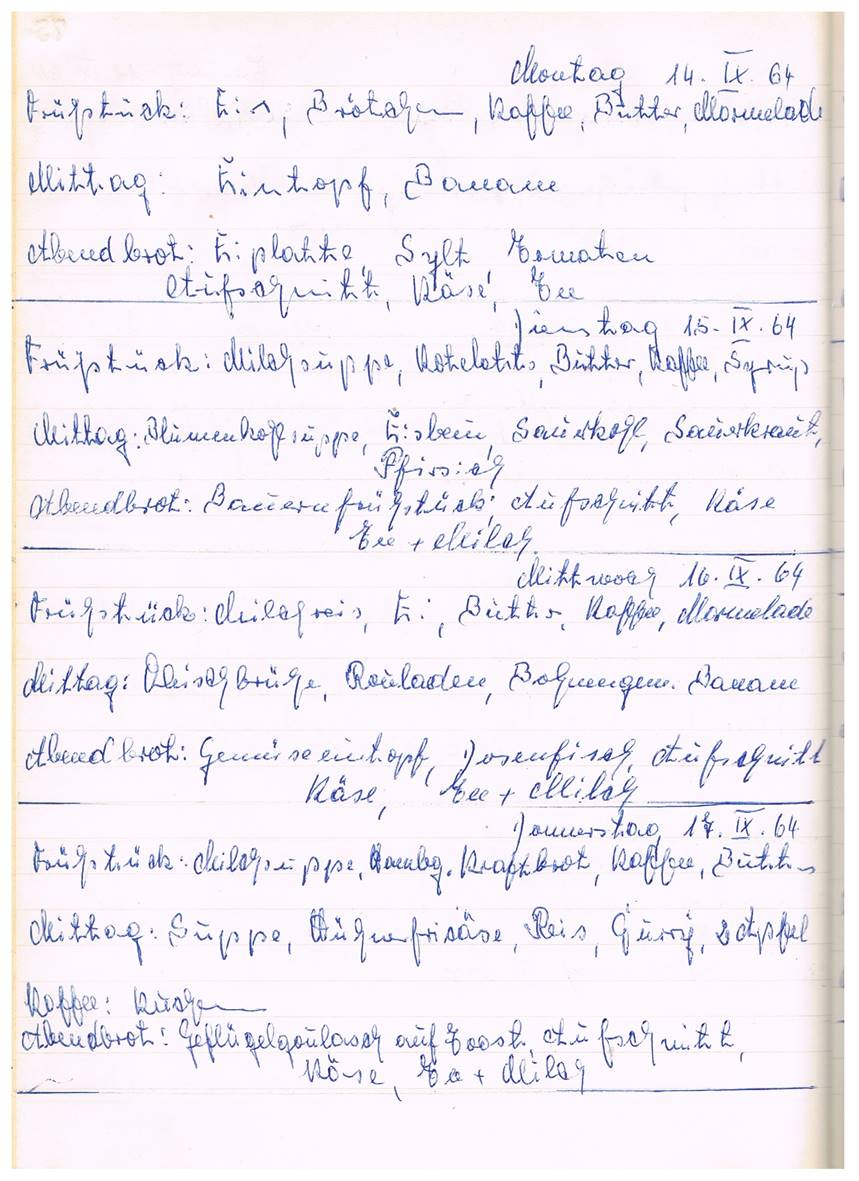 Montag 14. IX. 64
Frühstück: Eis, Brötchen, Kaffee, Butter, Marmelade
Mittag: Eintopf, Banane
Abendbrot: Eiplatte, Sylt, Tomaten
Aufschnitt, Käse, Tee
Dienstag 15. IX. 64
Frühstück: Milchsuppe, Koteletts, Butter, Kaffee, Syrup
Mittag: Blumenkohlsuppe, Eisbein, Sauerkohl, Sauerkraut,
Pfirsich
Abendbrot: Bauernfrühstück, Aufschnitt, Käse
Tee + Milch
Mittwoch 16. IX. 64
Frühstück: Milchreis, Ei, Butter, Kaffee, Marmelade
Mittag: Fleischbrühe, Rouladen, Bohnengem. Banane
Abendbrot: Gemüseeintopf, Dosenfisch, Aufschnitt
Käse, Tee + Milch
Donnerstag 17. IX. 64
Frühstück: Milchsuppe, Hambg. Kraftbrot, Kaffee, Butter
Mittag: Suppe, Hühnerfrisäse, Reis, Currÿ, 2 Apfel
Kaffee: Kuchen
Abendbrot: Geflügelgoulasch auf Toost, Aufschnitt,
Käse, Tee + Milch